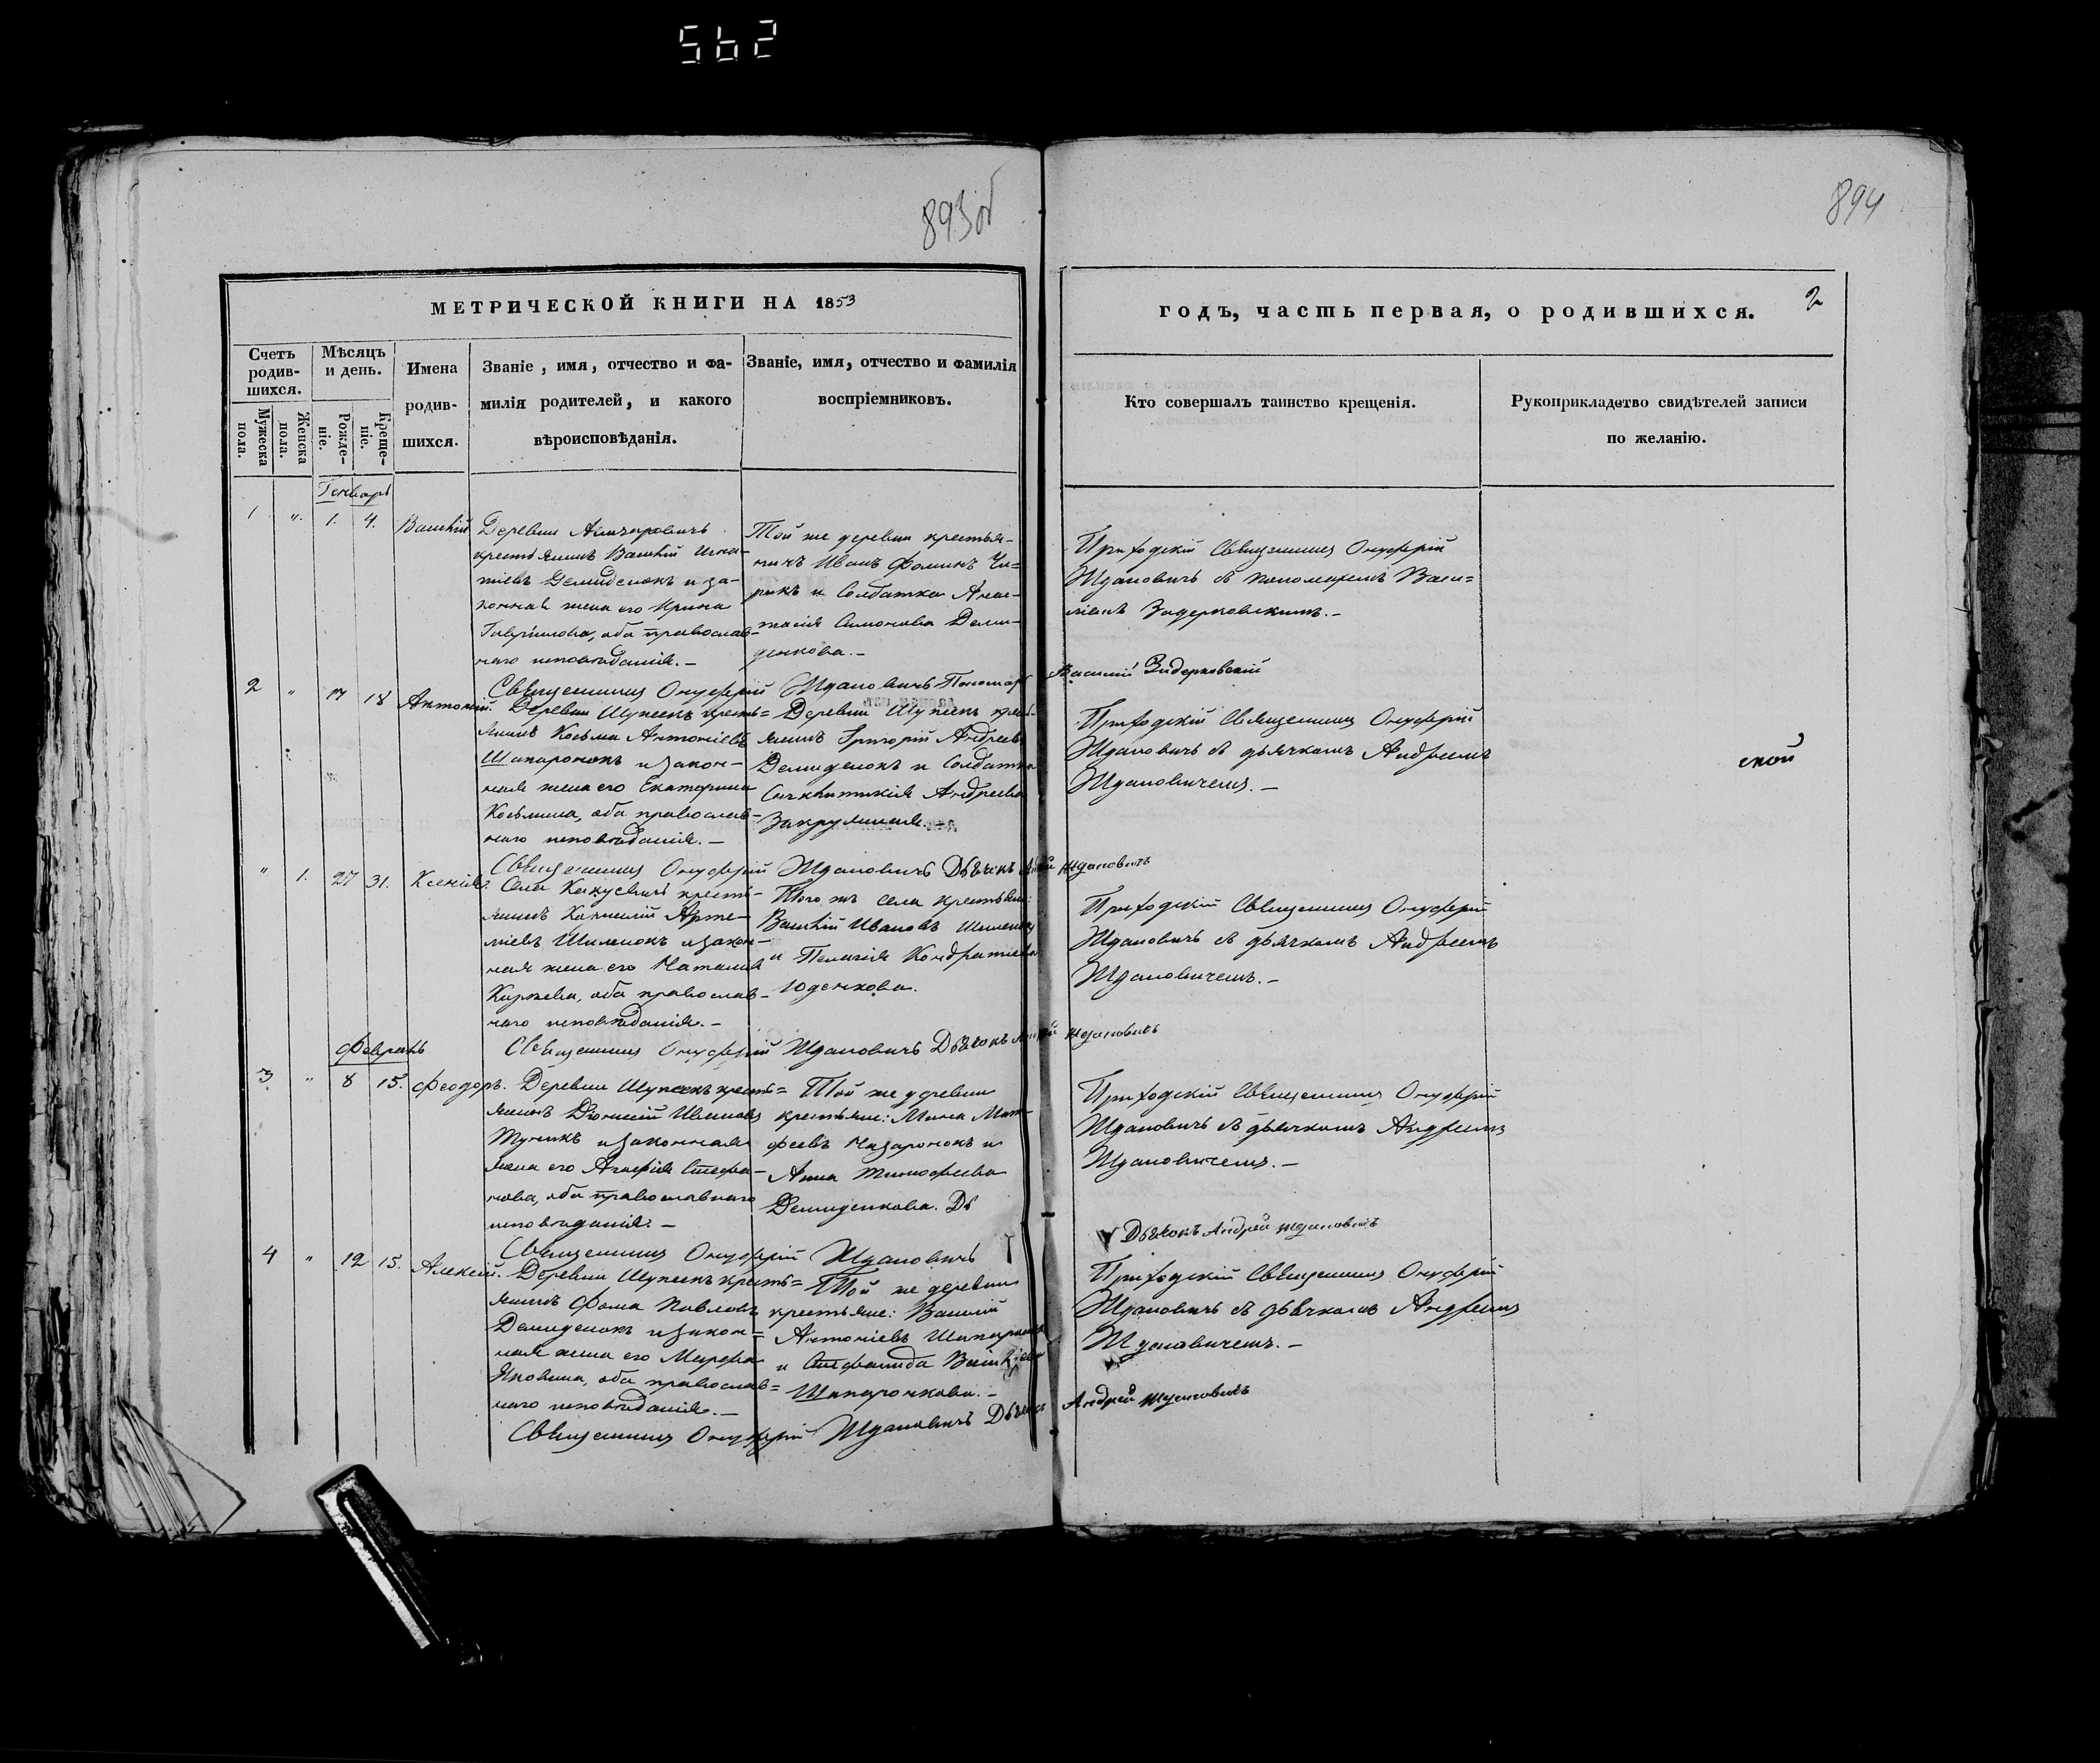 562
893об
894
МЕТРИЧЕСКОЙ КНИГИ НА 1853
годъ, часть первая, о родившихся.
2
Счетъ родив-шихся.
Мужеска пола.
Женска пола.
Мѣсяцъ и день.
Рожде-ніе.
Креще-ніе.
Имена
родив-
шихся.
Званіе, имя, отчество и фа-
милія родителей, и какого
вѣроисповѣданія.
Званіе, имя, отчество и фамилія
воспріемниковъ.
Кто совершалъ таинство крещенія.
Рукоприкладство свидѣтелей записи
по желанію.
Генварь
1 " 1. 4. Василій
Деревни
крестьянинъ Василій Игна-
тіевъ Демиденокъ и за-
конная жена его Ирина
Гаврилова, оба православ-
наго исповѣданія.–
Той же деревни крестья-
нинъ Иванъ Фоминъ Чи-
рикъ и Солдатка Анас-
тасія Симонова Деми-
денкова.–
Приходскій Священникъ Онуфрій
Ждановичъ съ пономаремъ Васи-
ліемъ Задерковскимъ.–
Священникъ Онуфрій Ждановичъ Пономарь Василій Задерковскій
2 " 17 18 Антоній.
Деревни Шупеекъ кресть=
янинъ Косьма Антоніевъ
Шапаронокъ и закон-
ная жена его Екатерина
Косьмина, оба православ-
наго исповѣданія.–
Деревни Шупеекъ кресть-
янинъ Григорій Андреевъ
Демиденокъ и Солдатка
Синклитикія Андреева
Приходскій Священникъ Онуфрій
Ждановичъ съ дьячкомъ Андреемъ
Ждановичемъ.–
ской
Священникъ Онуфрій Ждановичъ Дьячокъ Андрей Ждановичъ
" 1. 27 31. Ксенія.
Села Какусевичъ кресть-
янинъ Корнилій Арте-
міевъ Шиленокъ и закон-
ная жена его Наталія
Карпева, оба православ-
наго исповѣданія.–
Того жъ села крестьяне:
Василій Ивановъ Шиленокъ
и Пелагія Кондратіева
Юденкова.
Приходскій Священникъ Онуфрій
Ждановичъ съ дьячкомъ Андреемъ
Ждановичемъ.–
Священникъ Онуфрій Ждановичъ Дьячокъ Андрей Ждановичъ
Февраль
3 " 8 15. Феодоръ.
Деревни Шупеекъ кресть=
янинъ Діонисій Ивановъ
и законная
жена его Агафія Стефа-
нова, оба православнаго
исповѣданія.–
Той же деревни
крестьяне: Мина Мат-
феевъ Назаронокъ и
Анна Тимофеева
Демиденкова. Дь
Приходскій Священникъ Онуфрій
Ждановичъ съ дьячкомъ Андреемъ
Ждановичемъ.–
Священникъ Онуфрій Ждановичъ
Дьячокъ Андрей Ждановичъ
4 " 12 15. Алексій.
Деревни Шупеекъ кресть=
янинъ Фома Павловъ
Демиденокъ и закон=
ная жена его Марфа
Яковлева, оба православ=
наго исповѣданія.–
Той же деревни
крестьяне: Василій
Антоніевъ Шапаронокъ
и Стефанида Василіева
Шапаронкова.–
Приходскій Священникъ Онуфрій
Ждановичъ съ дьячкомъ Андреемъ
Ждановичемъ.–
Священникъ Онуфрій Ждановичъ Дьячокъ Андрей Ждановичъ